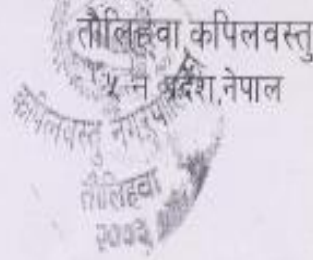 तौलिहवा कपिलवस्तु
५ न प्रदेश,नेपाल
कपिलवस्तु नगरपा
तौलिहवा
२०३९